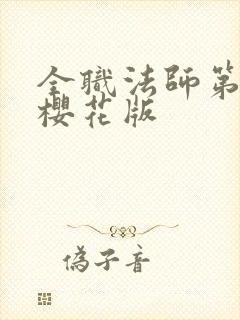 全職法師第
櫻花版
偽子音